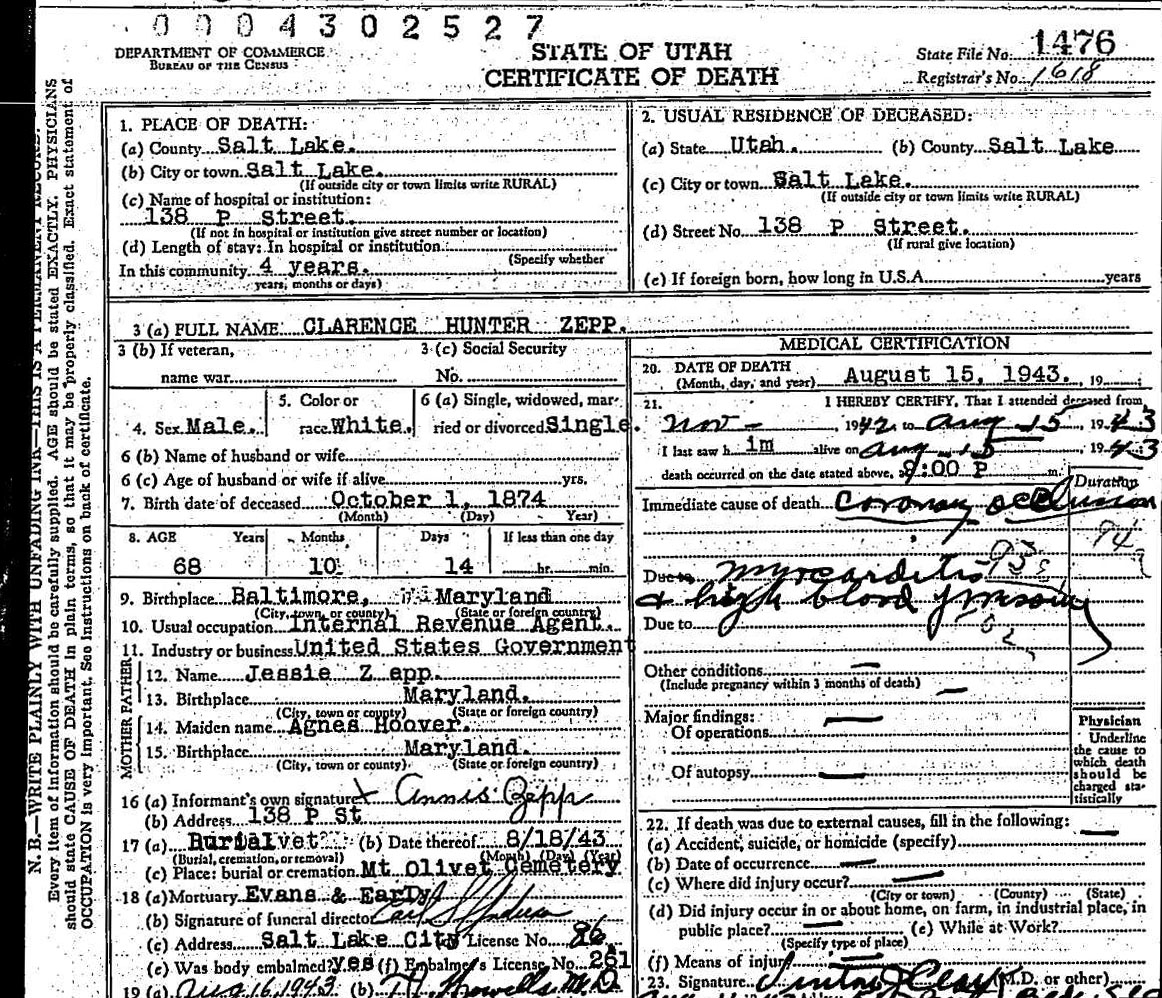 0004302527
DEPARTMENT OF COMMERCE
BUREAU OF THE CENSUS
STATE OF UTAH
CERTIFICATE OF DEATH
State File No. 1476
Registrar's No. 1618
N. B.—WRITE PLAINLY WITH UNFADING INK—THIS IS A PERMANENT RECORD.
Every item of information should be carefully supplied. AGE should be stated EXACTLY. PHYSICIANS
should state CAUSE OF DEATH in plain terms, so that it may be properly classified. Exact statement of
OCCUPATION is very important. See instructions on back of certificate.
1. PLACE OF DEATH:
(a) County Salt Lake.
(b) City or town Salt Lake.
(If outside city or town limits write RURAL)
(c) Name of hospital or institution:
138 P Street.
(If not in hospital or institution give street number or location)
(d) Length of stay: In hospital or institution
(Specify whether
In this community 4 years.
years, months or days)
2. USUAL RESIDENCE OF DECEASED:
(a) State Utah. (b) County Salt Lake
(c) City or town Salt Lake.
(If outside city or town limits write RURAL)
(d) Street No. 138 P Street.
(If rural give location)
(e) If foreign born, how long in U.S.A. years
3 (a) FULL NAME CLARENCE HUNTER ZEPP.
3 (b) If veteran,
name war
3 (c) Social Security
No.
4. Sex Male.
5. Color or
race White.
6 (a) Single, widowed, mar-
ried or divorced Single.
6 (b) Name of husband or wife
6 (c) Age of husband or wife if alive yrs.
7. Birth date of deceased October 1, 1874
(Month) (Day) Year)
8. AGE Years Months Days If less than one day
68 10 14 hr. min.
9. Birthplace Baltimore, Maryland
(City, town, or county) (State or foreign country)
10. Usual occupation Internal Revenue Agent.
11. Industry or business United States Government
FATHER
12. Name Jessie Z epp.
13. Birthplace Maryland.
(City, town or county) (State or foreign country)
MOTHER
14. Maiden name Agnes Hoover.
15. Birthplace Maryland.
(City, town or county) (State or foreign country)
16 (a) Informant's own signature X Annis Zepp
(b) Address 138 P St
17 (a) Burial vet (b) Date thereof 8/18/43
(Burial, cremation, or removal) (Month) (Day) (Year)
(c) Place: burial or cremation Mt Olivet Cemetery
18 (a) Mortuary Evans & Early
(b) Signature of funeral director
(c) Address Salt Lake City License No. 86
(e) Was body embalmed? yes (f) Embalmer's License No. 261
19 (a) Aug 16, 1943 (b) M.D.
MEDICAL CERTIFICATION
20. DATE OF DEATH
(Month, day, and year) August 15, 1943. , 19
21. I HEREBY CERTIFY, That I attended deceased from
Nov - 1942 to Aug 15 1943
I last saw h im alive on Aug 15 1943
death occurred on the date stated above, 9:00 P m.
Duration
Immediate cause of death coronary occlusion
94
Due to myocarditis 93
& high blood pressure
Due to 102
Other conditions —
(Include pregnancy within 3 months of death) —
Major findings:
Of operations —
Of autopsy —
Physician
Underline
the cause to
which death
should be
charged sta-
tistically
22. If death was due to external causes, fill in the following: —
(a) Accident, suicide, or homicide (specify)
(b) Date of occurrence —
(c) Where did injury occur? —
(City or town) (County) (State)
(d) Did injury occur in or about home, on farm, in industrial place, in
public place? — (e) While at Work?
(Specify type of place)
(f) Means of injury —
23. Signature Clay (M.D. or other)